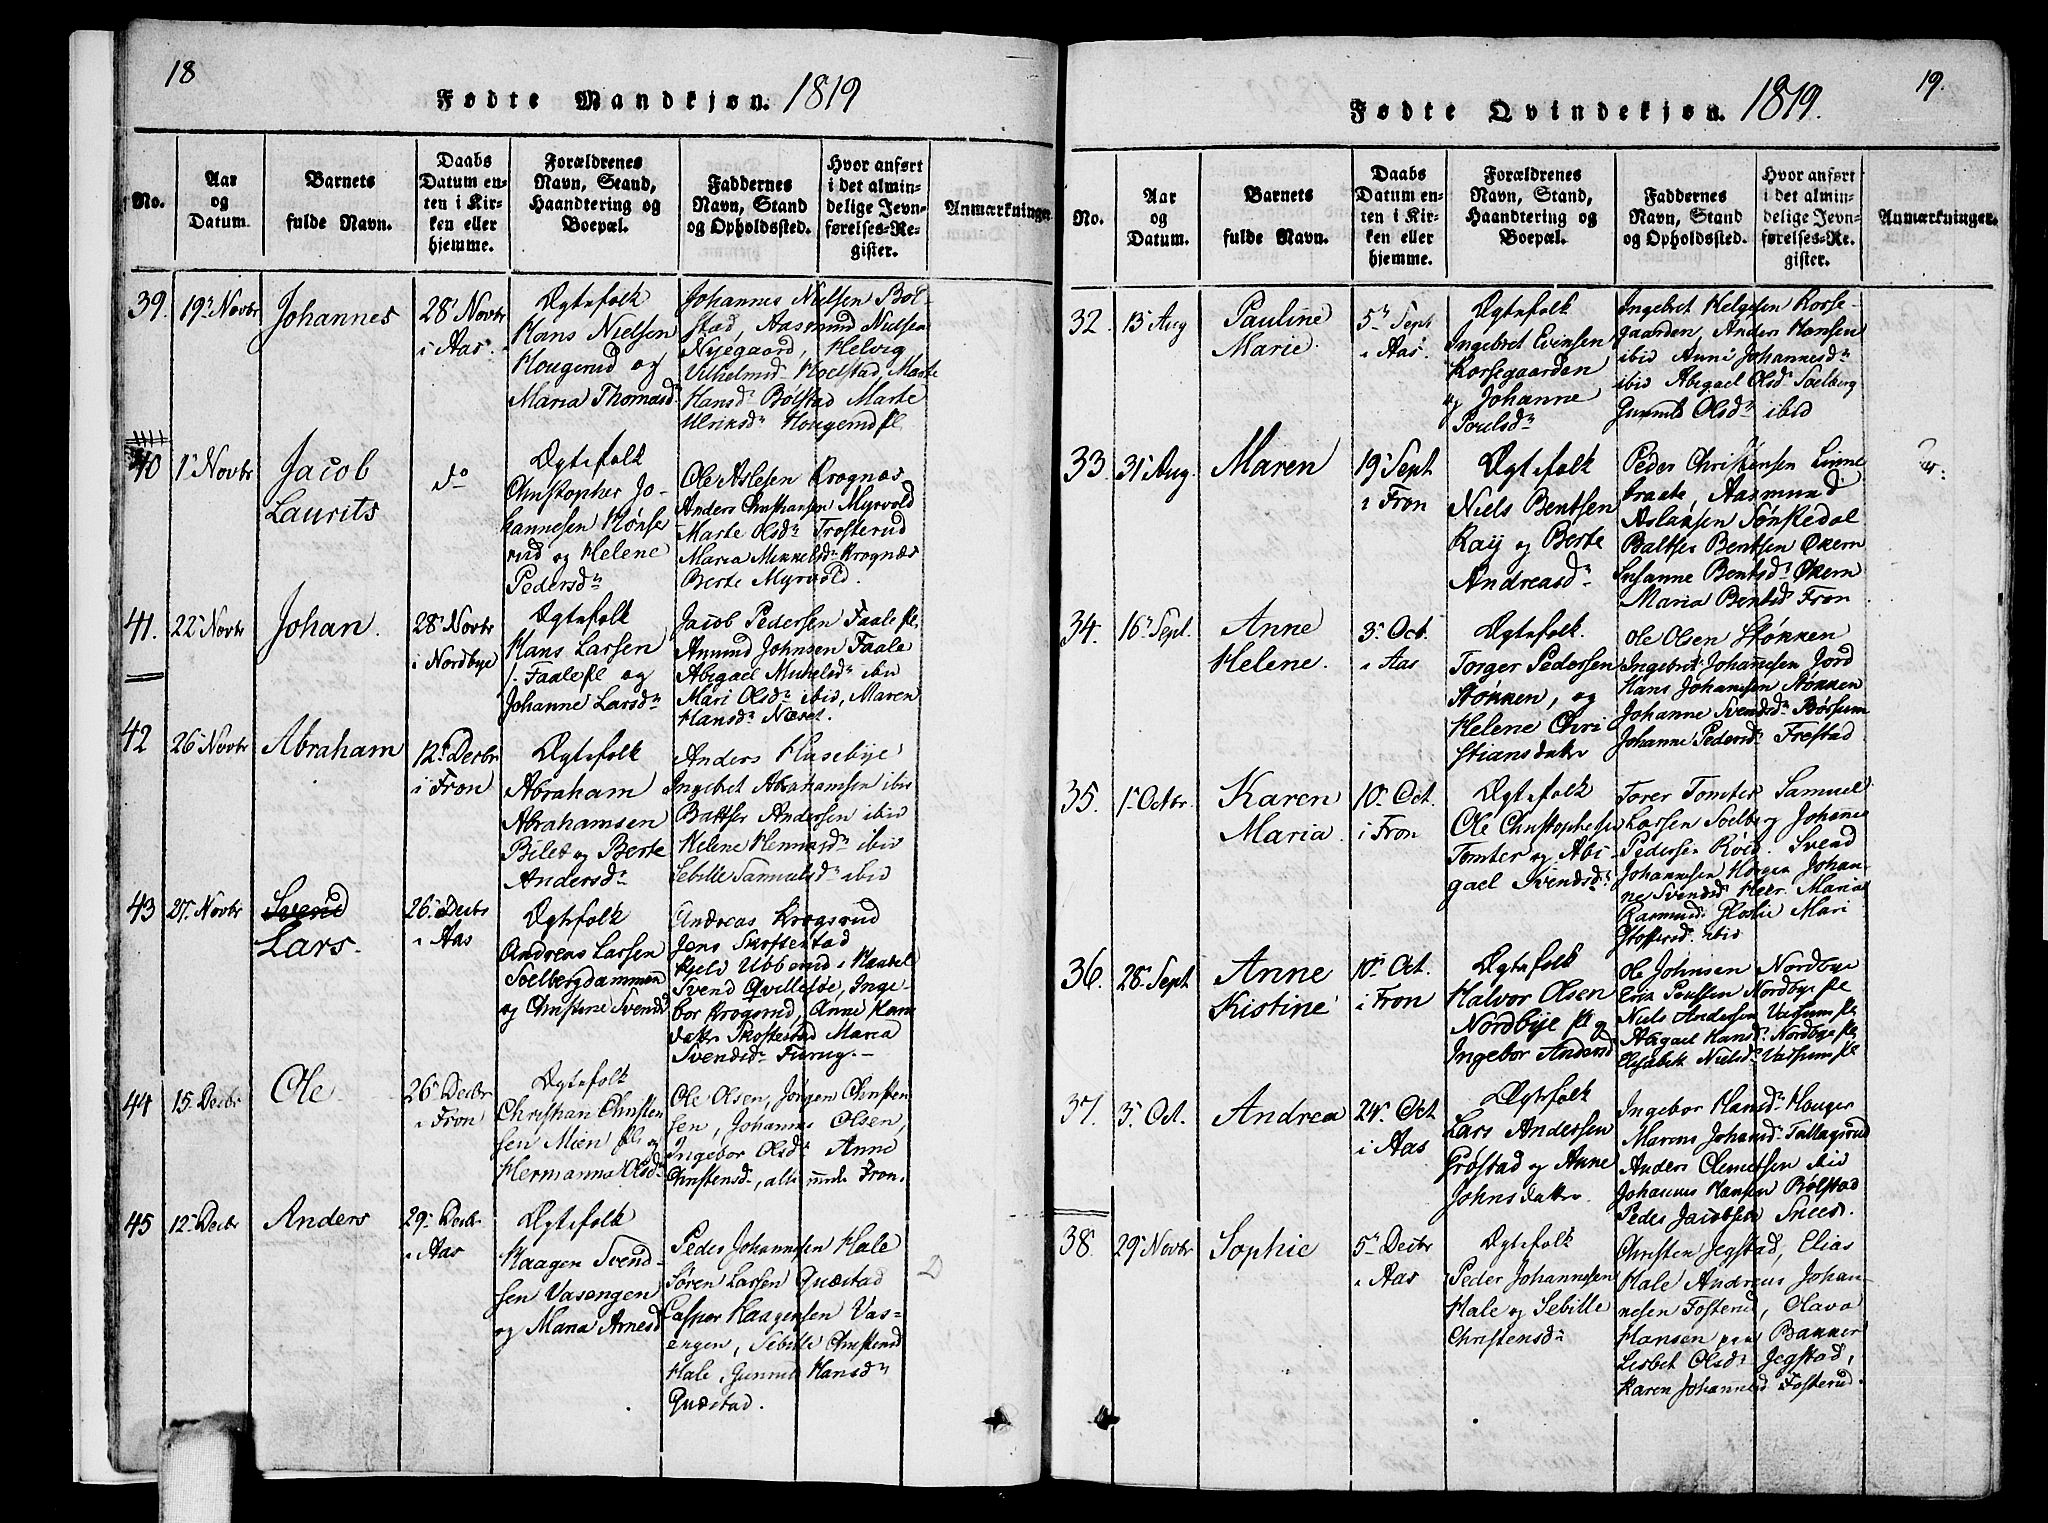 18
Fødte Mandkjøn. 1819
No.
Aar
og
Datum.
Barnets
fulde Navn.
Daabs
Datum en-
ten i Kir-
ken eller
hjemme.
Forældrenes
Navn, Stand,
Haandtering og
Boepæl.
Faddernes
Navn, Stand
og Opholdssted.
Hvor anført
i det almin-
delige Jevn-
førelses-Re-
gister.
Anmærkninger
39.
19 Novbr
Johannes
28 Novbr
i Aas.
Ægtefolk
Hans Nielsen
Hougerud og
Maria Thomasd
Johannes Nielsen Bol-
stad, Aasmund Nielsen
Nyegaard, Helvig
Vilhelmsd Hoelstad, Marte
Hansd Bølstad Marte
Ulriksd Hougerud pl.
40
1 Novbr
Jacob
Laurits
do
Ægtefolk
Christopher Jo-
hannesen Hønse
rud og Helene
Pedersd
Ole Aslesen Krognæs
Anders Christiansen Myrvold
Marte Olsd Trosterud
Maria Mikkelsd Krognæs
Berte Myrvold.
41.
22 Novbr
Johan.
28 Novbr
i Nordbye
Ægtefolk
Hans Larsen
Faale pl og
Johanne Larsd
Jacob Pedersen Faale pl.
Amund Johnsen Faale
Abigael Michelsd ibid
Mari Olsd ibid, Maren
Hansd Næset.
42
26 Novbr
Abraham
12 Decbr
i Fron
Ægtefolk
Abraham
Abrahamsen
Bilet og Berte
Andersd
Anders Husebye
Ingebret Abrahamsen ibid
Baltser Andersen ibid
Helene Henriksd ibid
Sebille Samuelsd ibid
43
27. Novbr
Svend
Lars.
26 Decbr
i Aas
Ægtefolk
Andreas Larsen
Solbergdammen
og Christine Svendsd
Andreas Krogsrud
Jens Skoftestad
Kield Ubberud i
Svend Qvillesøe, Inge-
bor Krogsrud, Anne Hans
datter Skoftestad Maria
Svendsd Furug.
44
15 Decbr
Ole
26 Decbr
i Fron
Ægtefolk
Christian Christen
sen Mien pl. og
Hermanna Olsd
Ole Olsen, Jørgen Christen
sen, Johannes Olsen,
Ingebor Olsd Anne
Christensd, alle unde Fron.
45
12 Decbr
Anders
29 Decbr
i Aas
Ægtefolk
Haagen Svend-
sen Vasengen
og Maria Arnesd
Peder Johannesen Hale
Søren Larsen Qvæstad
Casper Haagensen Vas-
engen, Sebille Christensd
Hale, Gunnil Hansd
Qvæstad.
D
19.
Fødte Qvindekjøn. 1819.
No.
Aar
og
Datum.
Barnets
fulde Navn.
Daabs
Datum en-
ten i Kir-
ken eller
hjemme.
Forældrenes
Navn, Stand,
Haandtering og
Boepæl.
Faddernes
Navn, Stand
og Opholdssted.
Hvor anført
i det almin-
delige Jevn-
førelses-Re-
gister.
Anmærkninger.
32.
13 Aug
Pauline
Marie.
5 Sept
i Aas.
Ægtefolk
Ingebret Evensen
Korsegaarden
og Johanne
Poulsd
Ingebret Helgesen Korse-
gaarden, Anders Hansen
ibid Anne Johannesd
ibid Abigael Olsd Solberg
Gunnild Olsd ibid
33.
31 Aug.
Maren
19 Sept
i Fron
Ægtefolk
Niels Bentsen
Kaij og Berte
Andreasd
Peder Christensen Linne
braate, Aasmund
Aslaksen Sønstedal
Baltser Bentsen Økern
Susanne Bentsd Økern
Maria Bentsd Fron
34.
16 Sept.
Anne
Helene.
3 Oct.
i Aas
Ægtefolk.
Torger Pedersen
Støkken, og
Helene Chri
stiansdatter
Ole Olsen Støkken
Ingebret Johannesen Jord
Hans Johannesen Støkken
Johanne Svendsd Børsum
Johanne Pedersd Frestad
35.
1 Octbr.
Karen
Maria.
10 Oct.
i Fron
Ægtefolk
Ole Christophersen
Tomter og Abi-
gael Svendsd
Torer Tomter Samuel
Larsen Solberg Johannes
Pedersen Svend
Johannesen Horgen Johan-
ne Svendsd Maria
Rasmusd Mari
ibid
36.
28 Sept
Anne
Kistine
10 Oct.
i Fron
Ægtefolk
Halvor Olsen
Nordbye pl og
Ingebor Andersd
Ole Johnsen Nordbye
Erik Poulsen Nordbye pl
Niels Andersen Vassum pl
Abigael Hansd Nordbye pl,
Elisabeth Nielsd Vassum pl
37.
3 Oct.
Andrea
24 Oct
i Aas
Ægtefolk
Lars Andersen
Frøstad og Anne
Johnsdatter
Ingebor Hansd Houger
Marens Johansd Tallagsrud
Anders Clemetsen ibid
Johannes Hansen Bølstad
Peder Jacobsen Sneed.
38.
29 Novbr
Sophie
5 Decbr
i Aas
Ægtefolk
Peder Johannesen
Hale og Sebille
Christensd
Christen Jegstad, Elias
Hale Andreas Johan-
nesen Fosterud, Olava
Hansen paa Banner
Lisbet Olsd Jegstad,
Karen Johannesd Fosterud.